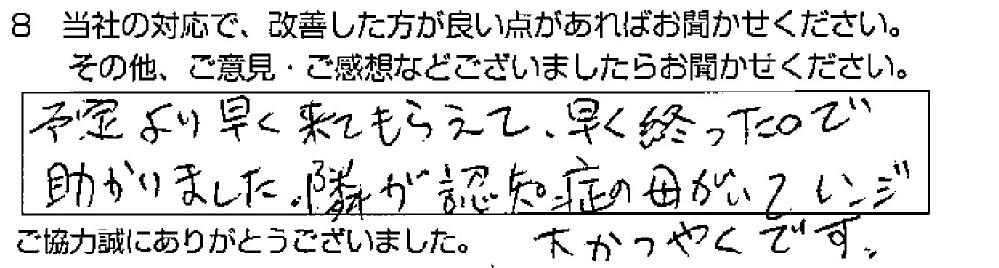 8 当社の対応で、改善した方が良い点があればお聞かせください。
その他、ご意見・ご感想などございましたらお聞かせください。
予定より早く来てもらえて、早く終ったので
助かりました。隣が認知症の母がいて
ご協力誠にありがとうございました。
大かつやくです。